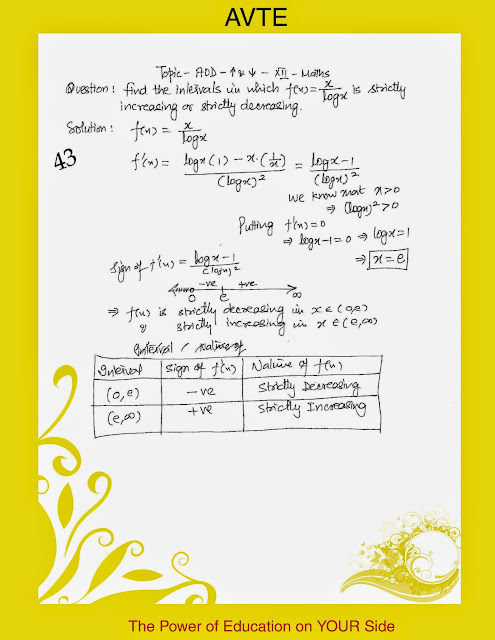 AVTE
Topic - AOD - ↑ & ↓ - XII - Maths
Question: find the intervals in which f(x) = x/logx is strictly
increasing or strictly decreasing.
Solution: f(x) = x/logx
43
f'(x) = (logx(1) - x·(1/x))/(logx)² = (logx-1)/(logx)²
We know that x>0
⇒ (logx)²>0
Putting f'(x)=0
⇒ logx-1=0 ⇒ logx=1
⇒ x=e
Sign of f'(x) = (logx-1)/(logx)²
-ve +ve
0 e ∞
⇒ f(x) is strictly decreasing in x ∈ (0,e)
& strictly increasing in x ∈ (e,∞)
Interval / Nature of
Interval Sign of f'(x) Nature of f(x)
(0,e) -ve Strictly Decreasing
(e,∞) +ve Strictly Increasing
The Power of Education on YOUR Side